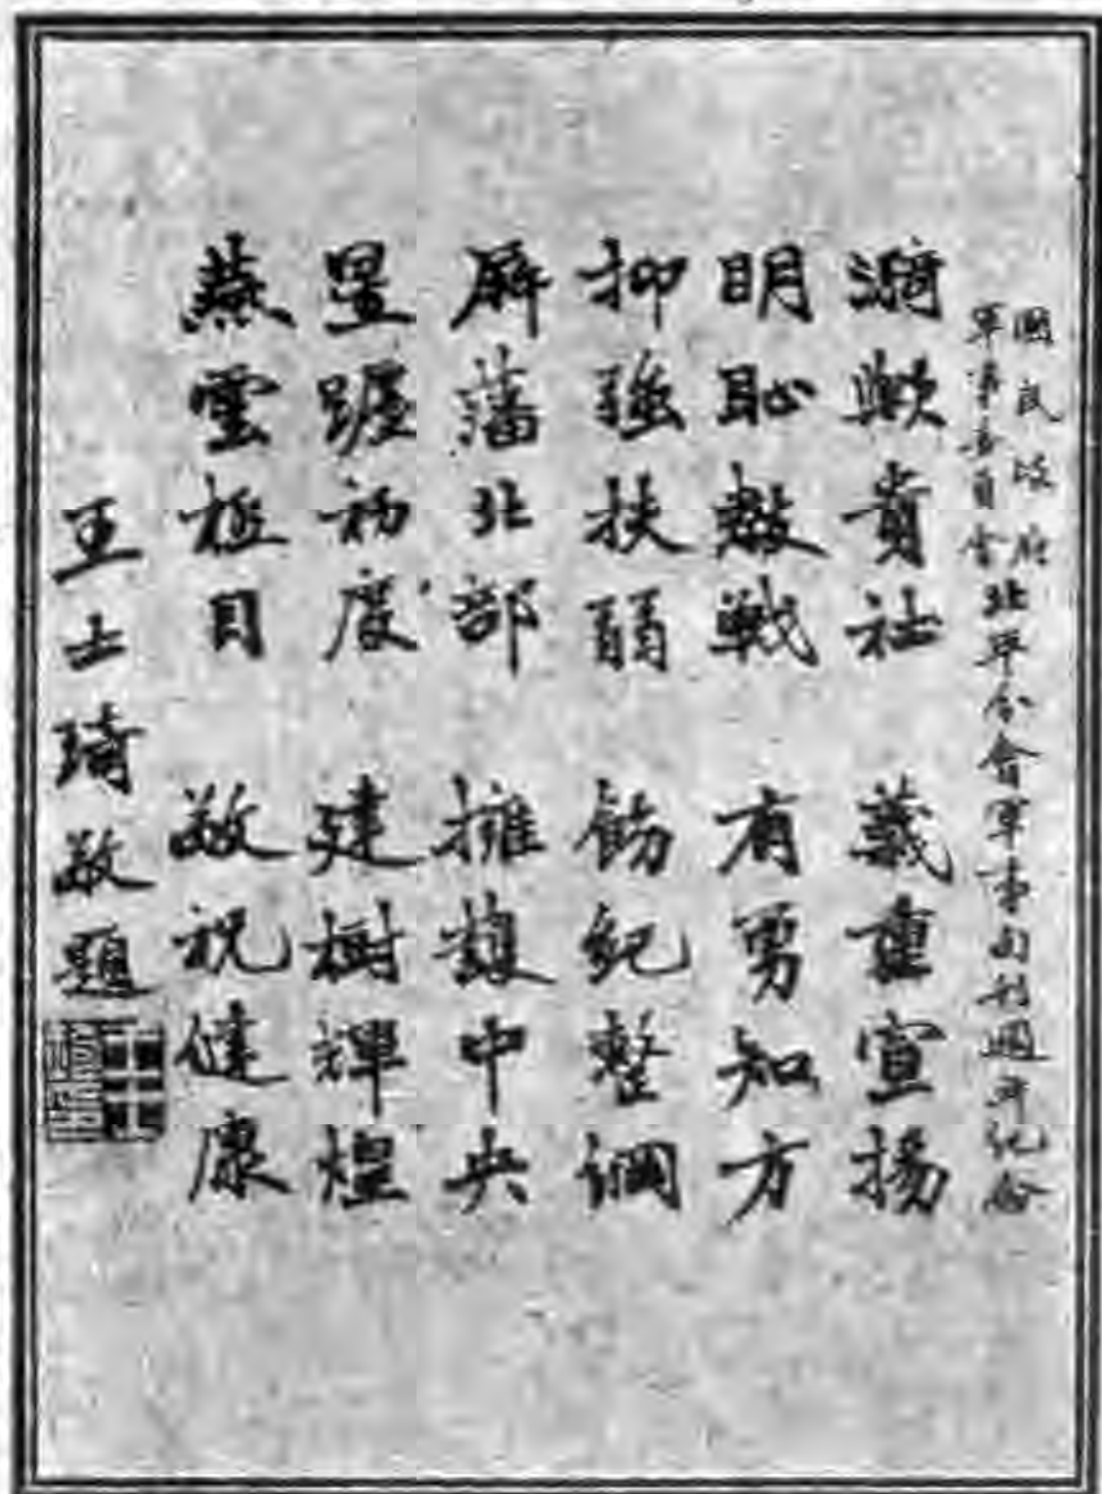 國民政府
軍事委員會
北平分會軍事旬刊週年紀念
漪歟貴社 義重宣揚
明恥教戰 有勇知方
抑強扶弱 飭紀整綱
屏藩北部 擁護中央
星躔初度 建樹輝煌
燕雲極目 敬祝健康
王士琦敬題